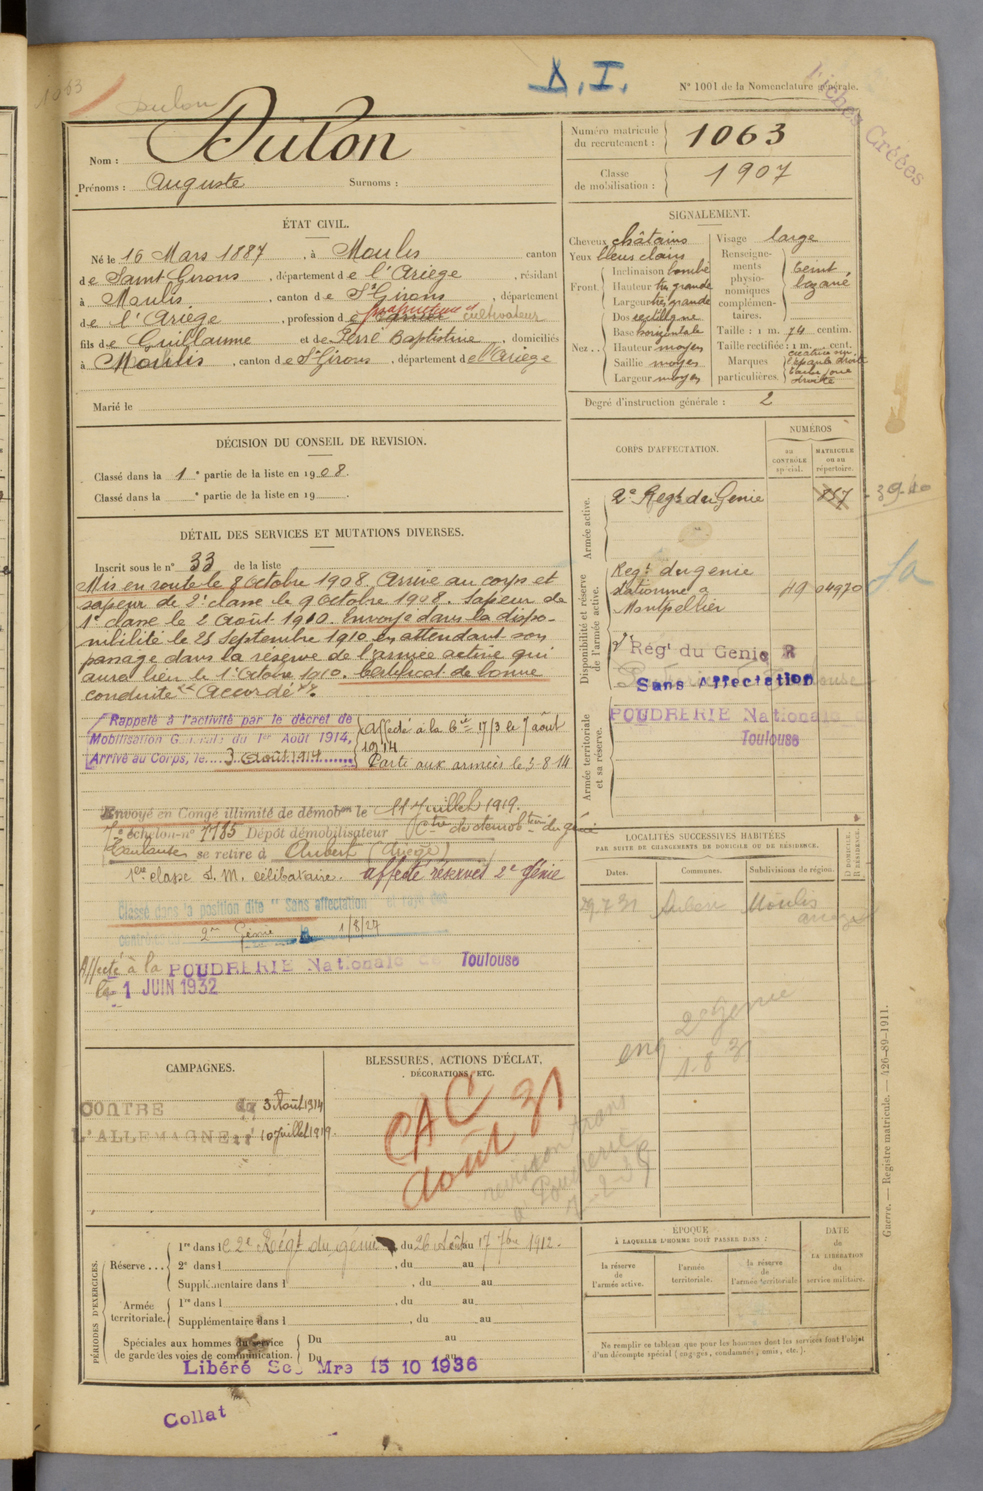 1063
Dulon
D. I.
N° 1001 de la Nomenclature générale.
Fiches Créées
Nom : Dulon
Prénoms : Auguste Surnoms :
Numéro matricule du recrutement : 1063
Classe de mobilisation : 1907
ÉTAT CIVIL.
Né le 16 Mars 1887, à Moulis canton
de Saint Girons, département de l'Ariège, résidant
à Moulis, canton de St Girons, département
de l'Ariège, profession de cultivateur
fils de Guillaume et de Baptistine, domiciliés
à Moulis, canton de St Girons, département de l'Ariège
Marié le
SIGNALEMENT.
Cheveux châtains
Yeux bleus clairs
Front. Inclinaison bombé
Hauteur très grande
Largeur très grande
Nez.. Dos rectiligne
Base horizontale
Hauteur moyen
Saillie moyen
Largeur moyen
Visage large
Renseignements physionomiques complémentaires. teint bazané
Taille : 1 m. 74 centim.
Taille rectifiée : 1 m. cent.
Marques particulières. cicatrice sur l'épaule droite joue droite
Degré d'instruction générale : 2
DÉCISION DU CONSEIL DE REVISION.
Classé dans la 1e partie de la liste en 1908.
Classé dans la e partie de la liste en 19 .
CORPS D'AFFECTATION.
NUMÉROS
au CONTRÔLE spécial.
MATRICULE ou au répertoire.
Armée active.
2e Régt du Génie 157
Disponibilité et réserve de l'armée active.
Regt du genie
stationné à
Montpellier
49 04970
Rég' du Genie R
Sans Affectation
Armée territoriale et sa réserve.
POUDRERIE Nationale de
Toulouse
DÉTAIL DES SERVICES ET MUTATIONS DIVERSES.
Inscrit sous le n° 33 de la liste
Mis en route le 8 Octobre 1908. Arrivé au corps et
sapeur de 2e classe le 9 Octobre 1908. Sapeur de
1e classe le 2 Août 1910. Envoyé dans la dispo-
nibilité le 25 Septembre 1910 en attendant son
passage dans la réserve de l'armée active qui
aura lieu le 1er Octobre 1910. Certificat de bonne
conduite "Accordé".
Rappelé à l'activité par le décret de
Mobilisation Générale du 1er Août 1914,
Arrivé au Corps, le 3 Août 1914
Affecté à la Cie 17/3 le 7 août
1914
Parti aux armées le
Envoyé en Congé illimité de démobon le 11 Juillet 1919.
7e échelon-n° 1185 Dépôt démobilisateur
Toulouse se retire à Aubert (Ariège)
1ère classe S. M. célibataire. affecté réserves 2e Génie
Classé dans la position dite "Sans affectation" et rayé des
2me Génie le 1/8/27
Affecté à la POUDRERIE Nationale de Toulouse
le 1 JUIN 1932
LOCALITÉS SUCCESSIVES HABITÉES
PAR SUITE DE CHANGEMENTS DE DOMICILE OU DE RÉSIDENCE.
Dates. Communes. Subdivisions de région. D DOMICILE. R RÉSIDENCE.
29.7.31 Moulis
2e Génie
CAMPAGNES.
CONTRE du 3 Août 1914
L'ALLEMAGNE au 10 Juillet 1919.
BLESSURES, ACTIONS D'ÉCLAT, DÉCORATIONS, ETC.
CAC 31
Août
revision trans
à Poudrerie
PÉRIODES D'EXERCICES.
Réserve... 1re dans le 2e Régt du génie, du 26 Août au 17 7bre 1912.
2e dans l , du au
Supplémentaire dans l , du au
Armée territoriale. 1re dans l , du au
Supplémentaire dans l , du au
Spéciales aux hommes du service de garde des voies de communication. Du au
Du au
Libéré Ser Mre 15 10 1936
ÉPOQUE
À LAQUELLE L'HOMME DOIT PASSER DANS :
la réserve de l'armée active.
l'armée territoriale.
la réserve de l'armée territoriale
DATE de LA LIBÉRATION du service militaire.
Ne remplir ce tableau que pour les hommes dont les services font l'objet
d'un décompte spécial (engagés, condamnés, omis, etc.).
Guerre. — Registre matricule. — 426-89-1911.
Collat